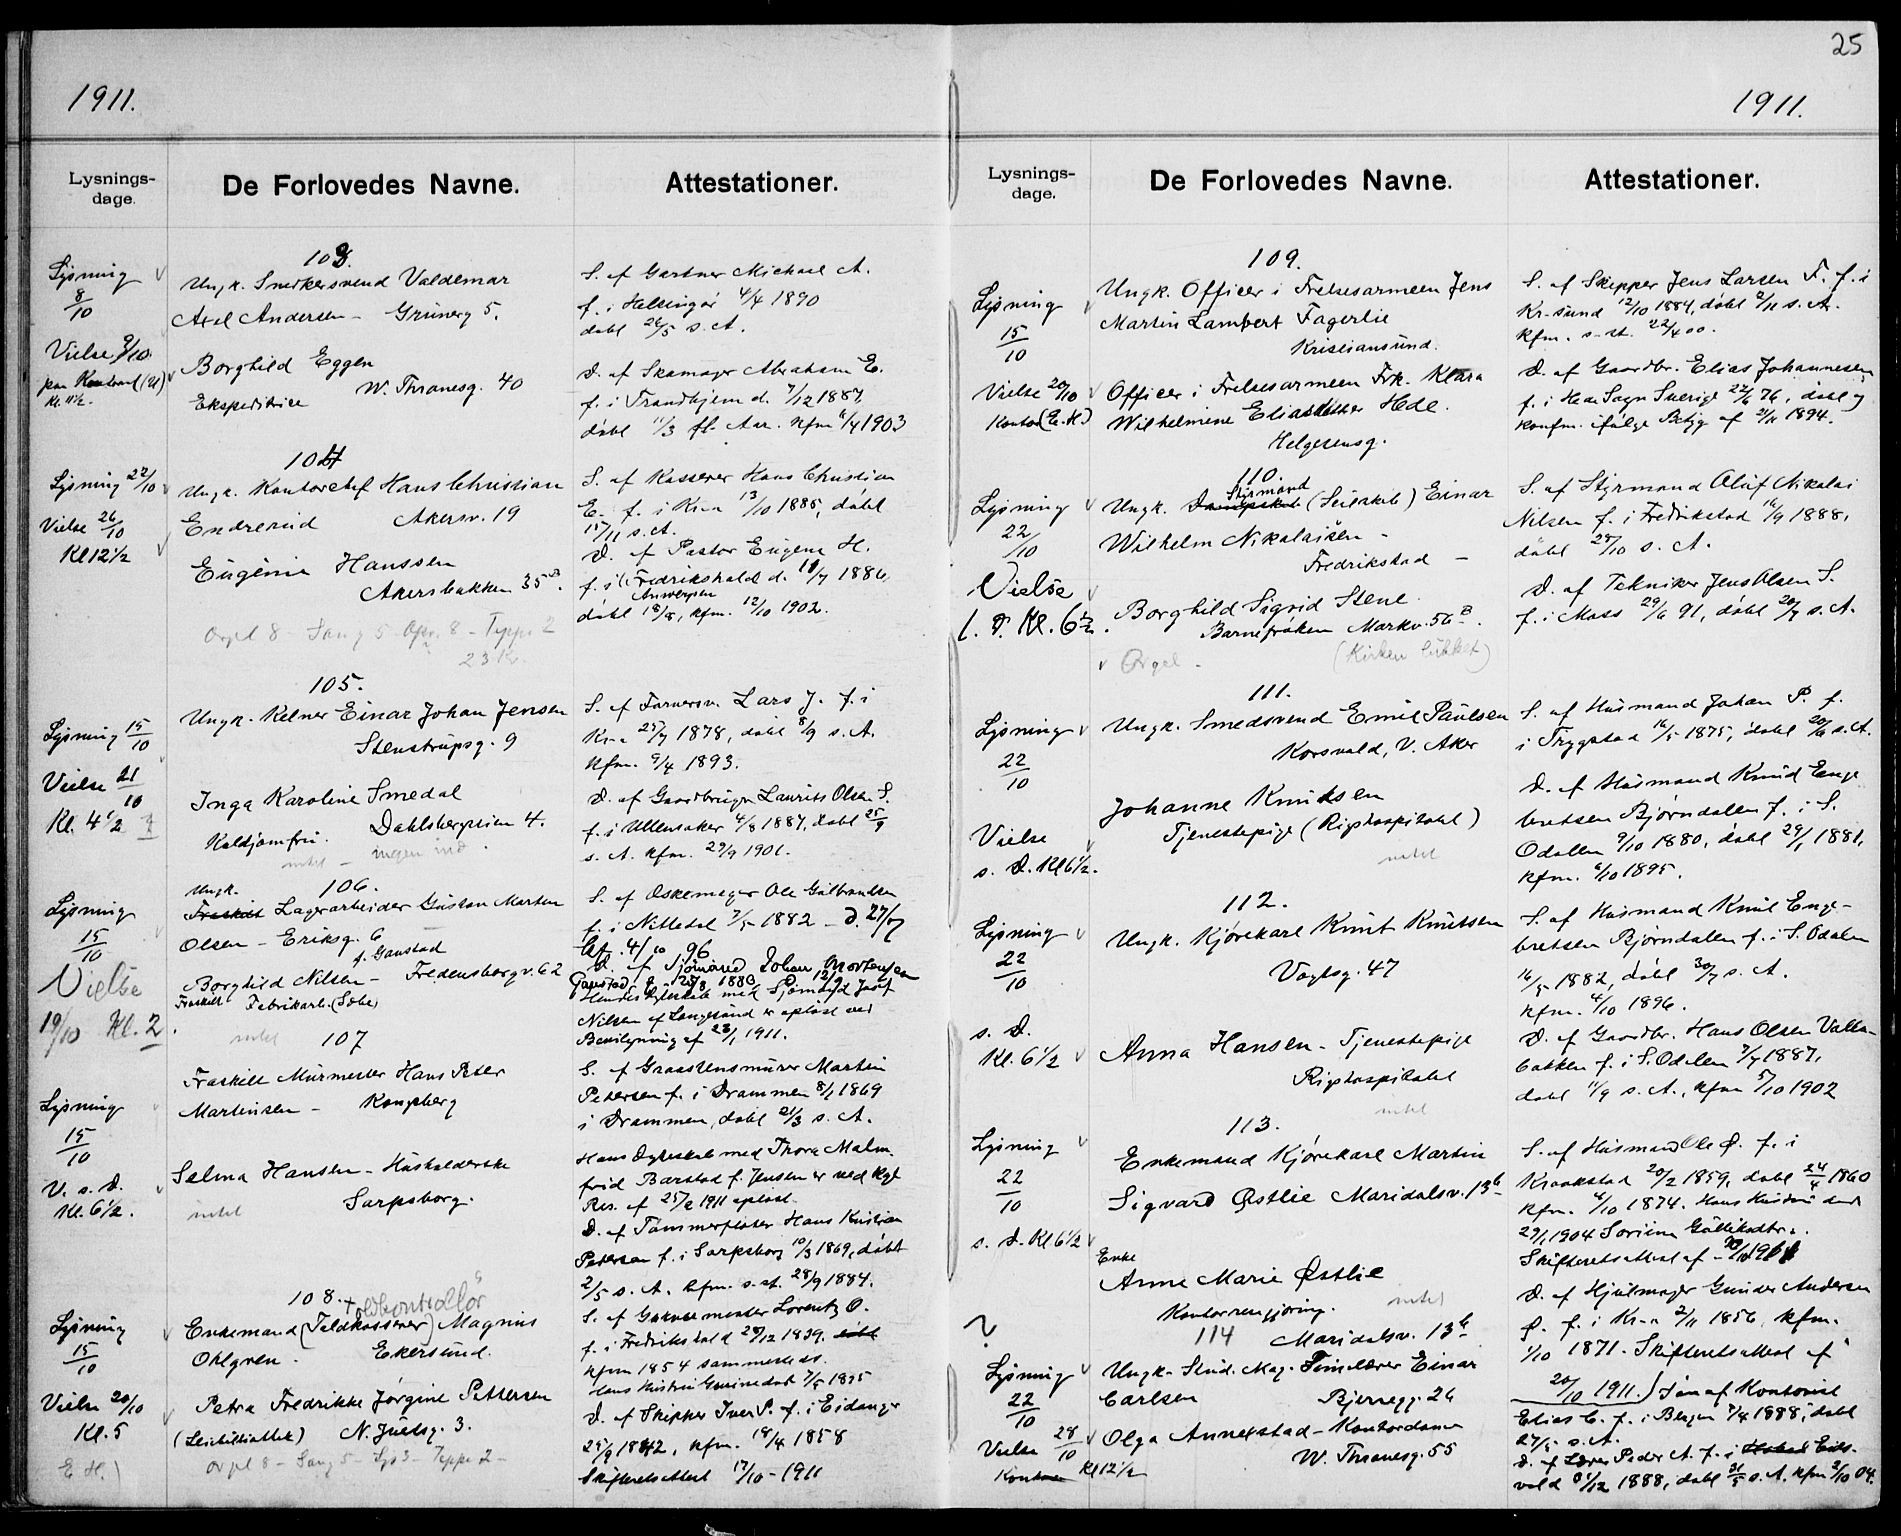 25
1911.
Lysnings-
dage.
De Forlovedes Navne.
Attestationer.
103.
Lysning
8/10
Vielse 9/10
paa Kontoret (U)
Kl. 11½.
Ungk. Snekkersvend Valdemar
Axel Andersen - Grünerg 5.
Borghild Eggen
W. Thranesg. 40
Ekspeditrice
S. af Gartner Michael A.
f. i Helsingør 4/4 1890
døbt 26/5 s. A.
D. af Skomager Abraham E.
f. i Trondhjem d. 7/12 1887,
døbt 11/3 fl. Aar. Kfm 1903
104
Lysning 22/10
Vielse 26/10
Kl 12½
Ungk. Kontorchef Hans Christian
Endrerud Akersv. 19
Eugénie Hanssen
Akersbakken 35 B.
Orgel 8 - Sang 5 - Opv. 8 - Teppe 2
23 Kr.
S. af Kasserer Hans Christian
E. f. i Kr-a 13/10 1885, døbt
15/11 s. A.
D. af Pastor Eugene H.
f. i (Fredrikshald d. 11/7 1886,
Antwerpen
døbt 18/8, kfm. 12/10 1902.
105.
Lysning 15/10
Vielse 21/10
Kl. 4½
Ungk. Kelner Einar Johan Jensen
Stenstrupsg. 9
Inga Karoline Smedal
Koldjomfru. Dahlsbergstien 4.
intet - ingen ind.
S. af Farversv. Lars J. f. i
Kr-a 25/7 1878, døbt 8/9 s. A.
Kfm. 9/4 1893.
D. af Gaardbruger Laurits Olsen S.
f. i Ullensaker 4/8 1887, døbt 25/9
s. A. Kfm. 29/9 1901.
106.
Lysning
15/10
Vielse
19/10 Kl. 2.
Ungk.
Fraskilt Lagerarbeider Gustav Morten
Olsen - Eriksg. 6
f. Gaustad
Borghild Nilsen - Fredensborgv. 62
Fraskilt Fabrikarb. (Sæbe)
intet
S. af Æskemager Ole Gulbrandsen
f. i Nittedal 7/5 1882 - d. 27/7
Kf. 4/10 96
D. af Sjømand Johan Mortensen
Gaustad, f. 1880
Hendes Ægteskab med Sjømand Josef
Nilsen af Langesund er opløst ved
Bevilgning af 23/1 1911.
107
Lysning
15/10
V. s. D.
Kl. 6½.
Fraskilt Murmester Hans Peter
Martinsen - Kongsberg
Selma Hansen - Husholderske
Sarpsborg.
intet
S. af Graastensmurer Martin
Petersen f. i Drammen 8/1 1869
i Drammen, døbt 21/3 s. A.
Hans Ægteskab med Thora Malm-
frid Barstad f. Jensen er ved Kgl
Res. af 25/2 1911 opløst.
D. af Tømmerfløter Hans Kristian
Petersen f. i Sarpsborg 10/3 1869, døbt
2/5 s. A. kfm. s. st. 28/9 1884.
108.
Lysning
15/10
Vielse 20/10
Kl. 5
E. H.)
Toldkontrollør
Enkemand (Toldkasserer) Magnus
Ohlgren. Ekersund.
Petra Fredrikke Jørgine Pettersen
N. Juelsg. 3.
Orgel 8 - Sang 5 - Lys 3 - Teppe 2 -
S. af Garvermester Lorentz O.
f. i Fredrikshald 29/12 1839. døbt
kfm 1854 sammesteds.
D. af Skipper Iver P. f. i Eidanger
25/9 1842, kfm. 18/4 1858
Skifteretsattest 17/10 - 1911
1911.
Lysnings-
dage.
De Forlovedes Navne.
Attestationer.
109.
Lysning
15/10
Vielse 20/10
Kontor (E. H.)
Ungk. Officer i Frelsesarmeen Jens
Martin Lambert Fagerlie
Kristiansund.
Officer i Frelsesarmeen Frk. Klara
Wilhelmine Eliasdotter Hede.
Helgesensg.
S. af Skipper Jens Larsen F. f. i
Kr-sund 12/10 1884, døbt 2/11 s. A.
Kfm. s. st. 22/4 00.
D. af Gaardbr. Elias Johannesen
f. i Hede Sogn Sverige 22/6 76, døbt og
konfm. ifølge Betyg af 2/11 1894.
110.
Lysning
22/10
Vielse
s. D. Kl. 6½.
Styrmand
Ungk. (Seilskib) Einar
Wilhelm Nikolaisen -
Fredrikstad -
Borghild Sigrid Stene.
Barnefrøken Markv. 56 B.
Orgel - (Kirken lukket)
S. af Styrmand Oluf Nikolai
Nilsen f. i Fredrikstad 16/9 1888,
døbt 28/10 s. A.
D. af Tekniker Jens Olsen S.
f. i Moss 29/6 91, døbt 20/9 s. A.
111.
Lysning
22/10
Vielse
s. D. Kl 6½.
Ungk. Smedsvend Emil Paulsen
Korsvold, V. Aker
Johanne Knudsen
Tjenestepige (Rigshospitalet)
intet
S. af Husmand Johan P. f.
i Trygstad 16/5 1875, døbt 20/6 s. A.
D. af Husmand Knud Enge-
bretsen Bjørndalen f. i S.
Odalen 9/10 1880, døbt 29/1 1881,
Kfm. 6/10 1895.
112.
Lysning
22/10
s. D.
Kl. 6½
Ungk. Kjørekarl Knut Knutsen
Vogtsg. 47
Anna Hansen - Tjenestepige
Rigshospitalet
intet
S. af Husmand Knut Enge-
bretsen Bjørndalen f. i S. Odalen
16/5 1882, døbt 30/7 s. A.
Kfm. 4/10 1896.
D. af Gaardbr. Hans Olsen
bakken f. i S. Odalen 7/7 1887,
døbt 11/9 s. A., Kfm 5/10 1902
113.
Lysning
22/10
s. D. Kl 6½
Enkemand Kjørekarl Martin
Sigvard Østlie Maridalsv. 13 b
Enke
Anne Marie Østlie
Kontorrengjøring. intet
Maridalsv. 13 b
S. af Husmand Ole Ø. f. i
Kraakstad 20/2 1859, døbt 24/4 1860
Kfm. 4/10 1874. Hans Hustru død
29/1 1904
Skifteretsattest af 1911
D. af Hjulmager Gunder Andersen
Ø. f. i Kr-a 2/11 1856, kfm.
1/10 1871. Skifteretsattest af
20/10 1911.)
114
Lysning
22/10
Vielse 28/10
Kontoret Kl 12½
Ungk. Stud. Mag. Timelærer Einar
Carlsen Bjerregg. 26
Olga Annexstad - Kontordame
W. Thranesg. 55
Søn af Kontorist
Elias C. f. i Bergen 7/4 1888, døbt
27/5 s. A.
D. af Lærer Peder A. f. i Eids-
vold 1888, døbt s. A. kfm 2/10 04.